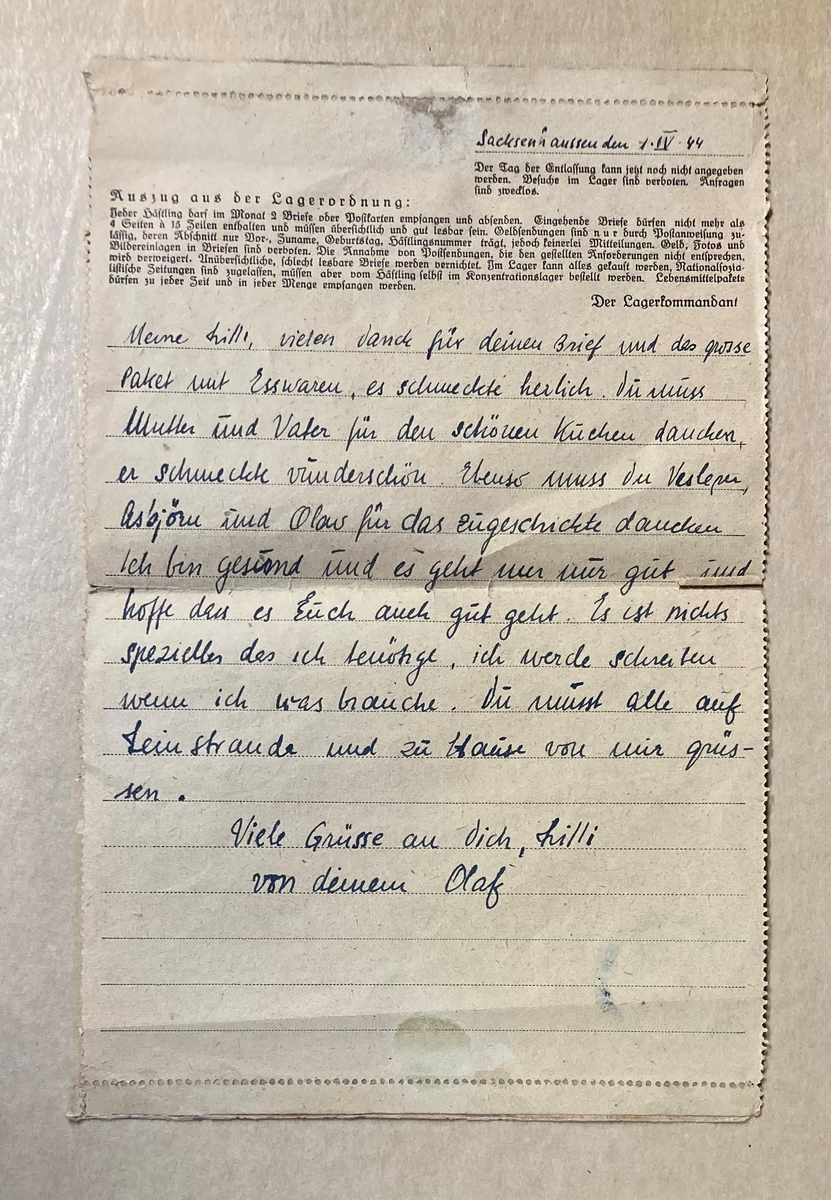 Sachsenhaussen den 1. IV 44
Der Tag der Entlassung kann jetzt noch nicht angegeben
werden. Besuche im Lager sind verboten. Anfragen
sind zwecklos.
Auszug aus der Lagerordnung:
Jeder Häftling darf im Monat 2 Briefe oder Postkarten empfangen und absenden. Eingehende Briefe dürfen nicht mehr als
4 Seiten à 15 Zeilen enthalten und müssen übersichtlich und gut lesbar sein. Geldsendungen sind nur durch Postanweisung zu-
lässig, deren Abschnitt nur Vor-, Zuname, Geburtstag, Häftlingsnummer trägt, jedoch keinerlei Mitteilungen. Geld, Fotos und
Bildereinlagen in Briefen sind verboten. Die Annahme von Postsendungen, die den gestellten Anforderungen nicht entsprechen,
wird verweigert. Unübersichtliche, schlecht lesbare Briefe werden vernichtet. Im Lager kann alles gekauft werden. Nationalsozia-
listische Zeitungen sind zugelassen, müssen aber vom Häftling selbst im Konzentrationslager bestellt werden. Lebensmittelpakete
dürfen zu jeder Zeit und in jeder Menge empfangen werden.
Der Lagerkommandant
Meine Lilli, vielen danck für deinen Brief und das grosse
Paket mit Esswaren, es schmeckte herlich. Du muss
Mutter und Vater für den schönen Kuchen dancken,
er schmeckte vünderschön. Ebenso muss du Vesleper,
Asbjörn und Olav für das zugeschickte dancken
Ich bin gesund und es geht mir nur gut und
hoffe das es Euch auch gut geht. Es ist nichts
spezielles das ich benötige, ich werde schreiben
wenn ich was brauche. Du müsst alle auf
Leinstrande und zu Hause von mir grüs-
sen.
Viele Grüsse an dich, Lilli
von deinem Olaf